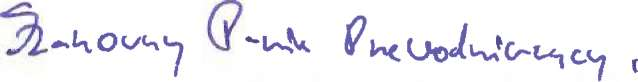 Szanowny Panie Przewodniczący,